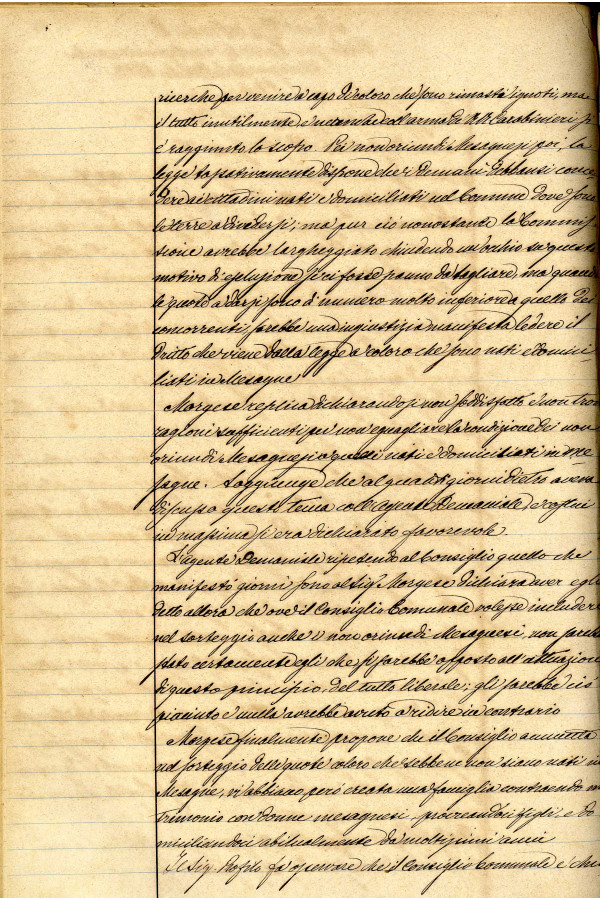 ricerche per venire a capo di coloro che sono rimasti ignoti, ma
il tutto inutilmente, e neanche coll'arma dei RR Carabinieri si
è raggiunto lo scopo. Pei non oriundi Mesagnesi poi, la
legge tassativamente dispone che i Demani debbansi conce
dere ai cittadini nati e domiciliati nel Comune dove sono
le terre a dividersi; ma pur ciò nonostante la Commis
sione avrebbe largheggiato chiudendo un'occhio su questo
motivo di esclusione se vi fosse panno da tagliare, ma quando
le quote a darsi sono di numero molto inferiore a quello dei
concorrenti sarebbe una ingiustizia manifesta ledere il
dritto che viene dalla legge a coloro che sono nati e domici-
liati in Mesagne
Morgese replica dichiarandosi non soddisfatto e non trova
ragioni sufficienti per non eguagliare la condizione dei non
oriundi Mesagnesi a quelli nati e domiciliati in Me
sagne. Soggiunge che alquanti giorni dietro aveva
discusso questo tema coll'agente Demaniale e costui
in massima si era dichiarato favorevole.
L'agente Demaniale ripetendo al Consiglio quello che
manifestò giorni sono al Sigr Morgese dichiara aver egli
detto allora che ove il Consiglio Comunale volesse includere
nel sorteggio anche i non oriundi Mesagnesi, non sarebbe
stato certamente egli che si sarebbe opposto all'attuazione
di questo principio, del tutto liberale; gli sarebbe ciò
piaciuto e nulla avrebbe avuto a ridire in contrario
Morgese finalmente propone che il Consiglio ammetta
nel sorteggio delle quote coloro che sebbene non siano nati in
Mesagne, vi abbiano però creata una famiglia contraendo ma
trimonio con donne mesagnesi, procreandoci figli, e do
miciliandoci abitualmente da moltissimi anni
Il Sig. Profilo fa osservare che il Consiglio Comunale è chia